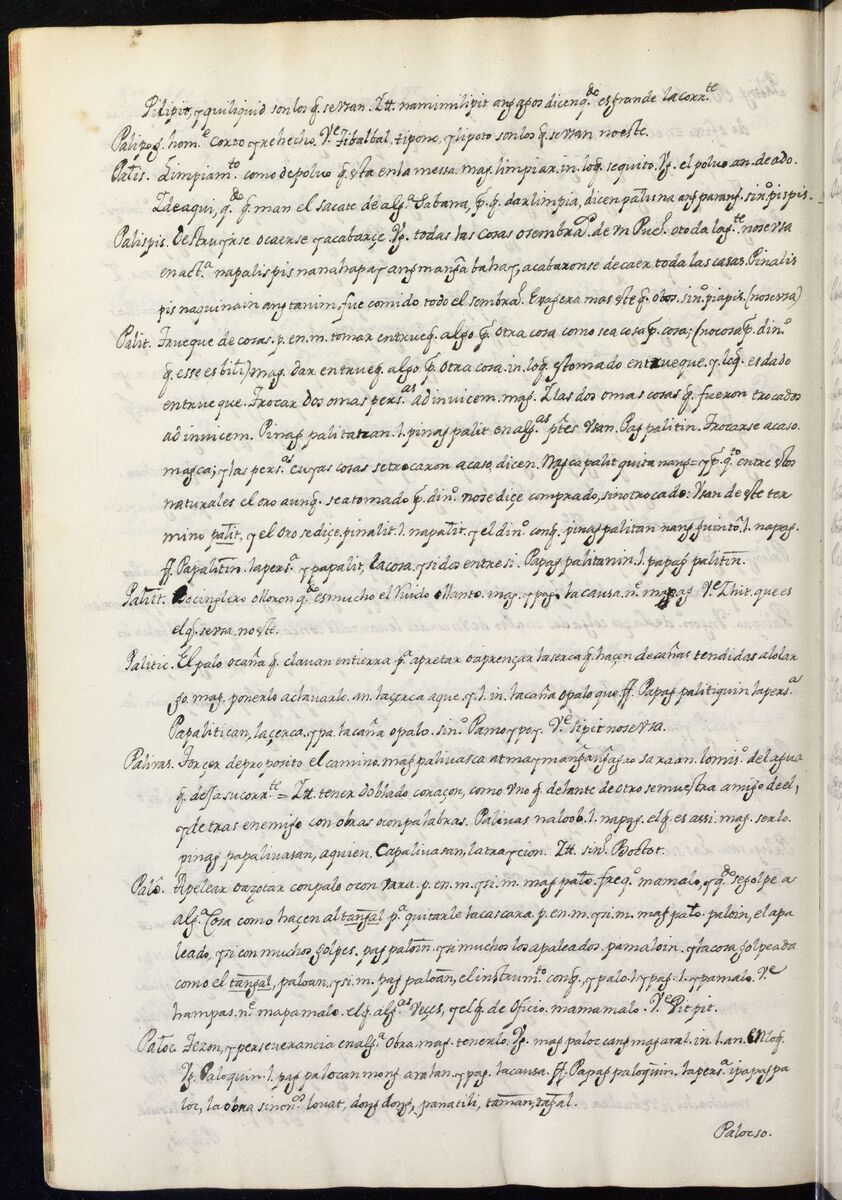 Pilipit, y quiliquid son los q̃. se vsan. Itt. namimilipit ang agos dicen q.do es grande la corr.te
Palipog. hom.e corto y rehecho. V.e Tibalbal, tipono, y lipoto son los q̃. se vsan no este.
Palis. Limpiam.to como de poluo q̃. esta en la messa. mag. limpiar. in. lo q̃. se quito. Vg. el poluo. an. de ado.
I de aqui, q.do q̃man el sacate de alg.a Sabana, p.a q̃. dar limpia, dicen palisna ang parang. sin.o pispis.
Palispis. Destruyrse o caerse y acabarçe. Vg. todas las cosas o sembra.s de vn Pue.o o toda la g.te no se vsa
en act.a napalispis na nahapay ang manga bahay, acabaronse de caer toda las casas. Pinalis
pis naquinain ang tanim, fue comido todo el sembra.o Exagera mas este q̃. obos. sin.o piapis. (no se vsa)
Palit. Trueque de cosas. p. en. m. tomar en trueq̃. algo p.r otra cosa como sea cosa p.r cosa; (no cosa p.r din.o
q̃. esse es bili) mag. dar en trueq̃. algo p.r otra cosa. in. lo q̃. es tomado en trueque. y lo q̃. es dado
en trueque. Trocar dos o mas pers.as ad invicem. mag. I las dos o mas cosas q̃. fueron trocados
ad invicem. Pinag palitatan. l. pinag palit en alg.as p.tes vsan. Pag palitin. Trocarse acaso.
magca; y las pers.as cuyas cosas se trocaron acaso, dicen. Nagcapalit quita nang = y p.r q.to entre estos
naturales el oro aunq̃. sea tomado p.r din.o no se diçe comprado, sino trocado: Vsan de este ter
mino palit, y el oro se diçe, pinalit. l. napalit. y el din.o con q̃. pinag palitan nang guinto. l. napag.
ff. Papalitin. la pers.a y papalit, la cosa, y si dos entre si. Papag palitanin. l. papag palitin.
Palitit. Bocinglero lloron q.do es mucho el ruido o llanto. mag. y pag. la causa. n.o mapag V.e Ihit. que es
el q̃. se vsa. no este.
Palitic. El palo o caña q̃. clavan en tierra p.a apretar o aprençar la serca q̃. haçen de cañas tendidas a lo lar
go. mag. ponerlo a clavarlo. an. la çerca a que. y l. in. la caña o palo que ff. Papag palitiquin la pers.a
Papalitican, la çerca. y pa. la caña o palo. sin.o Pamoypoy. V.e Sipit no se vsa.
Palivas. Torçer de proposito el camino. mag palivasca at may manga angao sa raan. lo mis.o del agua
q̃. dessa su corr.te = Itt. tener doblado coraçon, como vno q̃. delante de otro se muestra amigo de el,
y detras enemigo con obras o con palabras. Palivas na loob. l. napag. el q̃. es assi. mag. serlo.
pinag papalivasan, aquien. Capalivasan, la traycion. Itt. sin.o Boctot.
Palo. Apelear o azotar con palo o con vara. p. en. m. y si. m. mag palo. freq.o mamalo, y q.do se golpea
alg.a cosa como haçen al tangal p.a quitarle la cascara. p. en. m. y si. m. mag palo. paloin, el apa
leado, y si con muchos golpes. pag paloin. y si muchos los apaleados. pamaloin. y la cosa golpeada
como el tangal, paloan, y si. m. pag paloan, el instrum.to con q̃. y palo. l. y pag. l. y pamalo. V.e
hampas. n.o mapamalo. el q̃. alg.as veçes, y el q̃. de oficio. mamamalo. V.e Pitpit.
Paloc. Teson, y perseverancia en alg.a obra. mag. tenerlo. Vg. mag paloc cang mag aral. in. l. an. en lo q̃.
Vg. Paloquin. l. pag palocan mong aralan. y pag. la causa. ff. Papag paloquin. la pers.a ipapag pa
loc, la obra sinon.os louat, dong dong, panatili, taman, tagal.
Palocso.